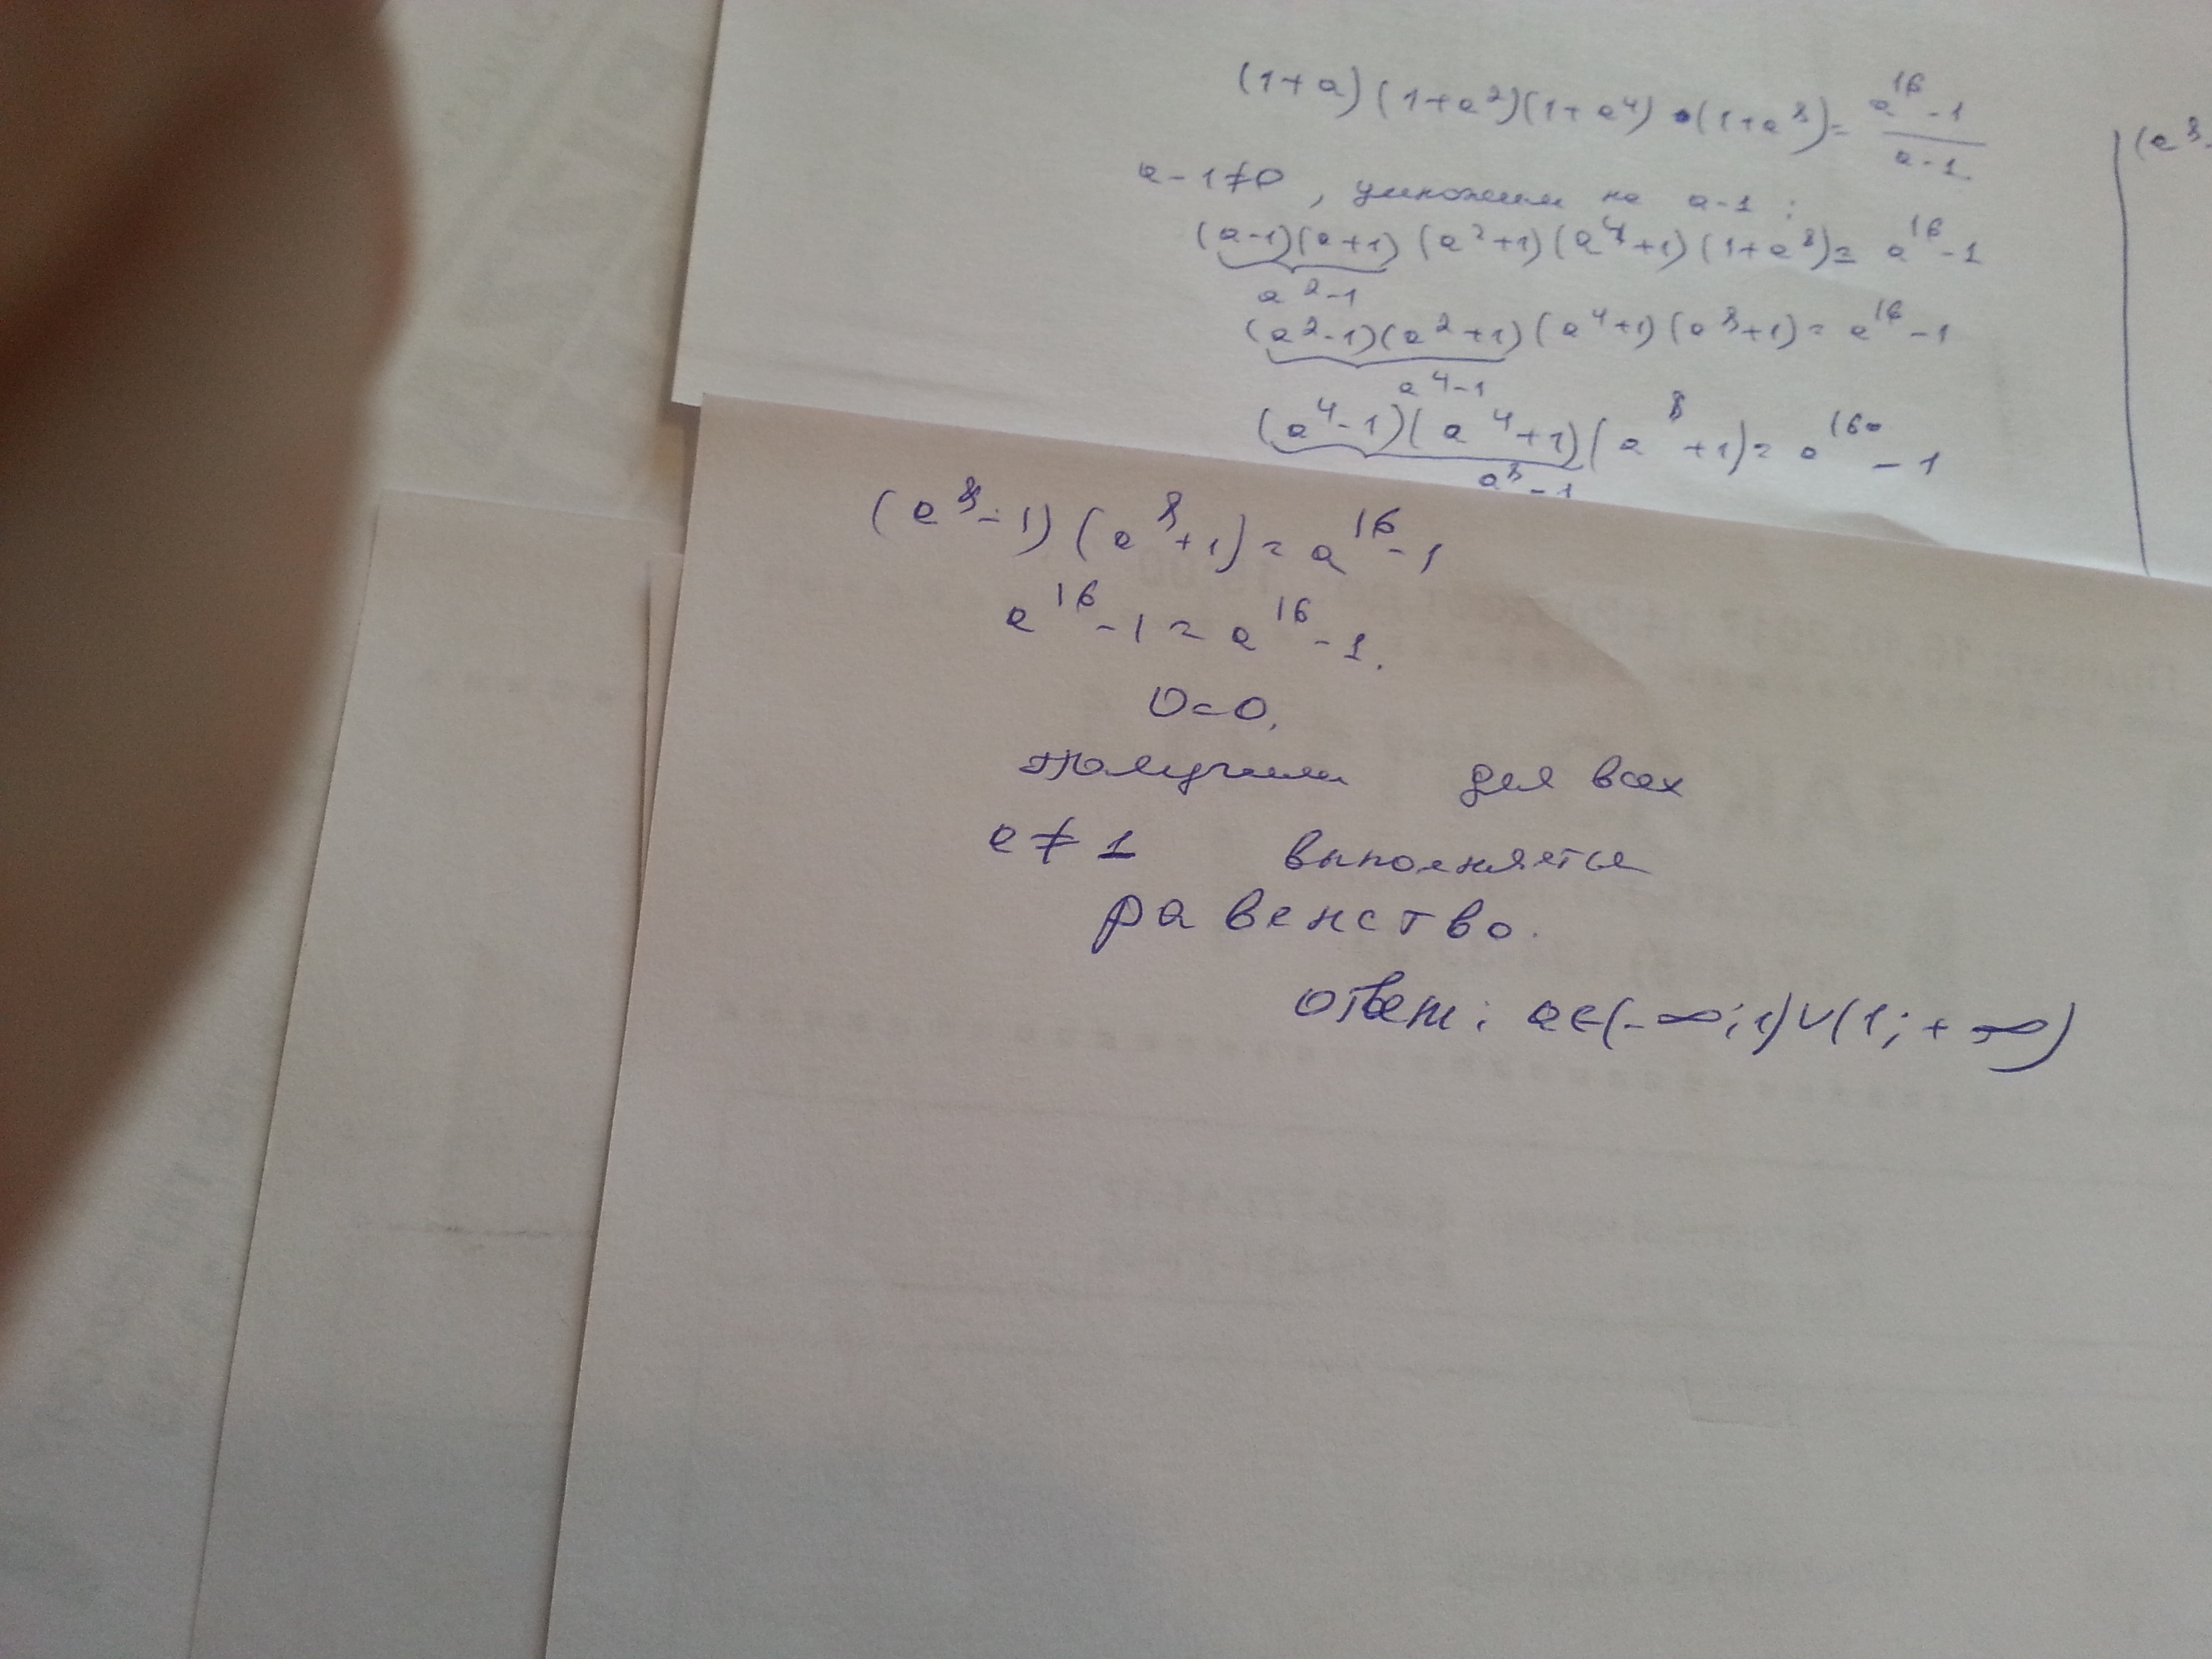 (1+a)(1+a²)(1+a⁴)•(1+a⁸)= a¹⁶-1 / a-1.
(a⁸-
a-1≠0, умножим на a-1:
(a-1)(a+1)(a²+1)(a⁴+1)(1+a⁸)= a¹⁶-1
a²-1
(a²-1)(a²+1)(a⁴+1)(a⁸+1)= a¹⁶-1
a⁴-1
(a⁴-1)(a⁴+1)(a⁸+1)= a¹⁶-1
a⁸-1
(a⁸-1)(a⁸+1)= a¹⁶-1
a¹⁶-1= a¹⁶-1.
0=0.
получили для всех
a≠1 выполняется
равенство.
ответ: a∈(-∞;1)∪(1;+∞)